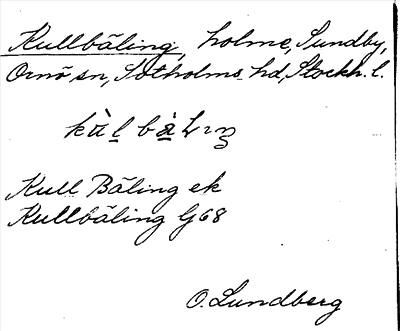 Kullbäling, holme, Sundby,
Ornö sn, Sotholms hd, Stockh. l.
Kull Bäling ek
Kullbäling G68
O. Lundberg